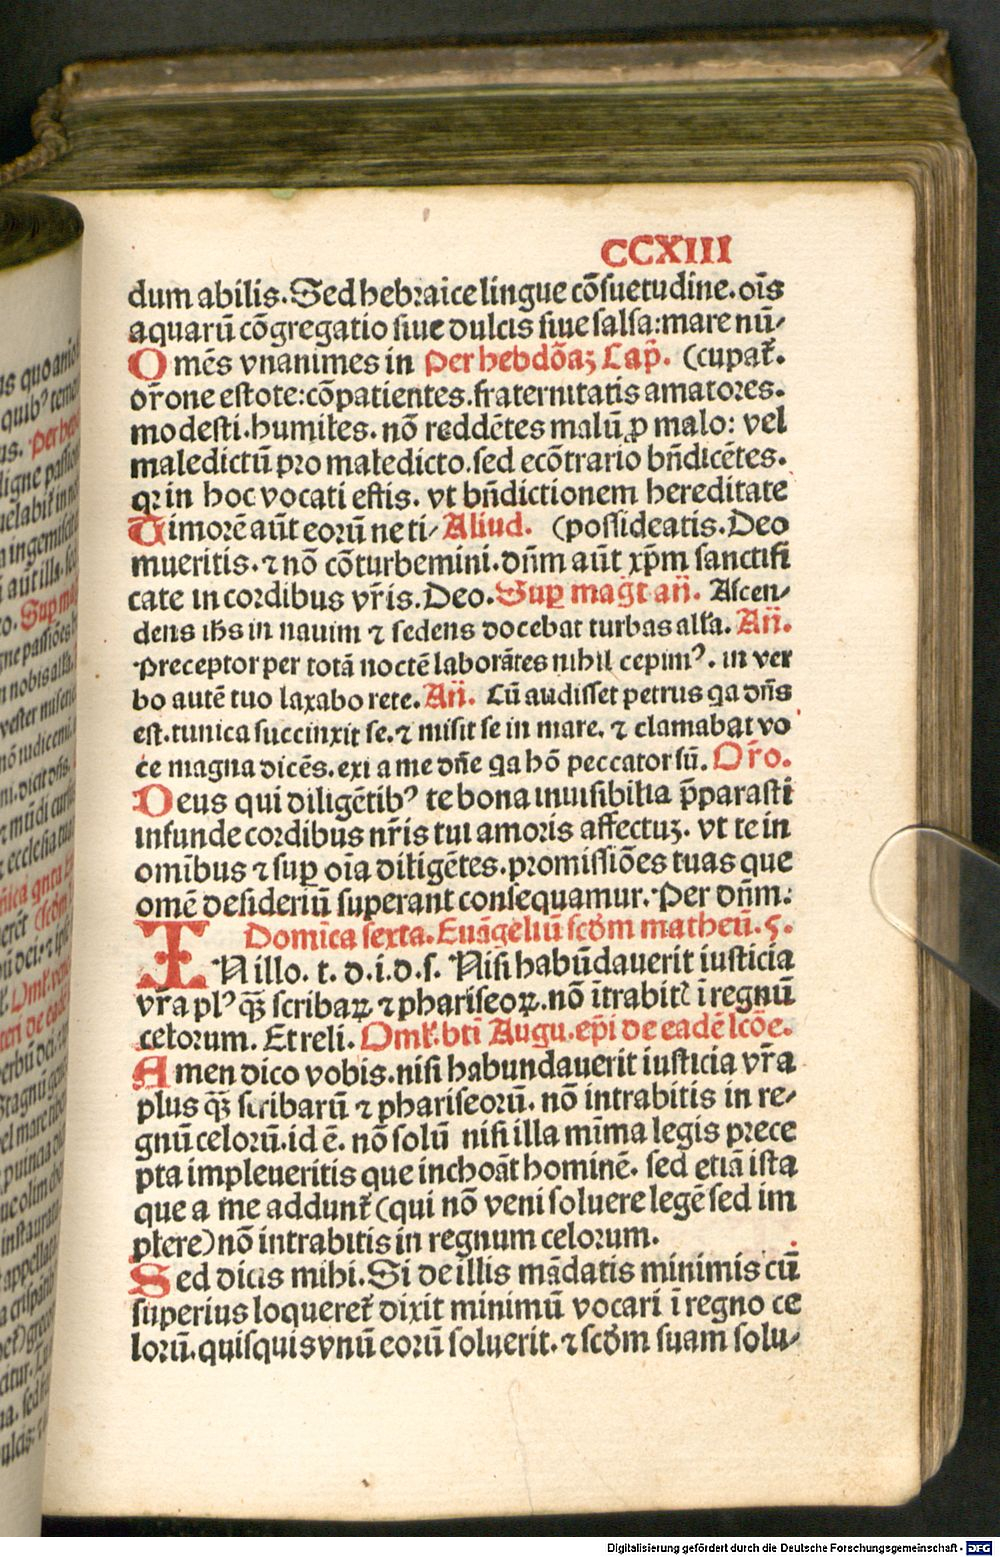 CCXIII
dum abilis. Sed hebraice lingue cōsuetudine. oīs
aquarū cōgregatio siue dulcis siue salsa: mare nū-
Omēs vnanimes in Per hebdōaꝫ Cap̄. (cupat᷑.
or̄one estote: cōpatientes. fraternitatis amatores.
modesti. humiles. nō reddētes malū ꝓ malo: vel
maledictū pro maledicto. sed ecōtrario bn̄dicētes.
qꝛ in hoc vocati estis. vt bn̄dictionem hereditate
Timorē aūt eorū ne ti- Aliud. (possideatis. Deo
mueritis. ⁊ nō cōturbemini. dn̄m aūt xp̄m sanctifi
cate in cordibus vr̄is. Deo. Suꝑ maḡt an̄. Ascen-
dens ih̄s in nauim ⁊ sedens docebat turbas all̄a. An̄.
Preceptor per totā noctē laborātes nihil cepimꝰ. in ver
bo autē tuo laxabo rete. An̄. Cū audisset petrus qa dn̄s
est. tunica succinxit se. ⁊ misit se in mare. ⁊ clamabat vo
ce magna dicēs. exi a me dn̄e qa hō peccator sū. Or̄o.
Deus qui diligētibꝰ te bona inuisibilia p̄parasti
infunde cordibus nr̄is tui amoris affectuꝫ. vt te in
omībus ⁊ suꝑ oīa diligētes. promissiōes tuas que
omē desideriū superant consequamur. Per dn̄m.
Domīca sexta. Euāgeliū scd̄m matheū. 5.
IN illo. t. d. i. d. s. Nisi habūdauerit iusticia
vr̄a plꝰ qꝫ̄ scribaꝝ ⁊ phariseoꝝ. nō ītrabit᷑ ī regnū
celorum. Et reli. Oml̄. bti Augu. ep̄i de eadē lcōe.
Amen dico vobis. nisi habundauerit iusticia vr̄a
plus qꝫ̄ scribarū ⁊ phariseorū. nō intrabitis in re-
gnū celorū. id ē. nō solū nisi illa mīma legis prece
pta impleueritis que inchoāt hominē. sed etiā ista
que a me addunt᷑ (qui nō veni soluere legē sed im
plere) nō intrabitis in regnum celorum.
Sed dicis mihi. Si de illis mādatis minimis cū
superius loqueret᷑ dixit minimū vocari ī regno ce
lorū. quisquis vnū eorū soluerit. ⁊ scd̄m suam solu-
Digitalisierung gefördert durch die Deutsche Forschungsgemeinschaft - DFG